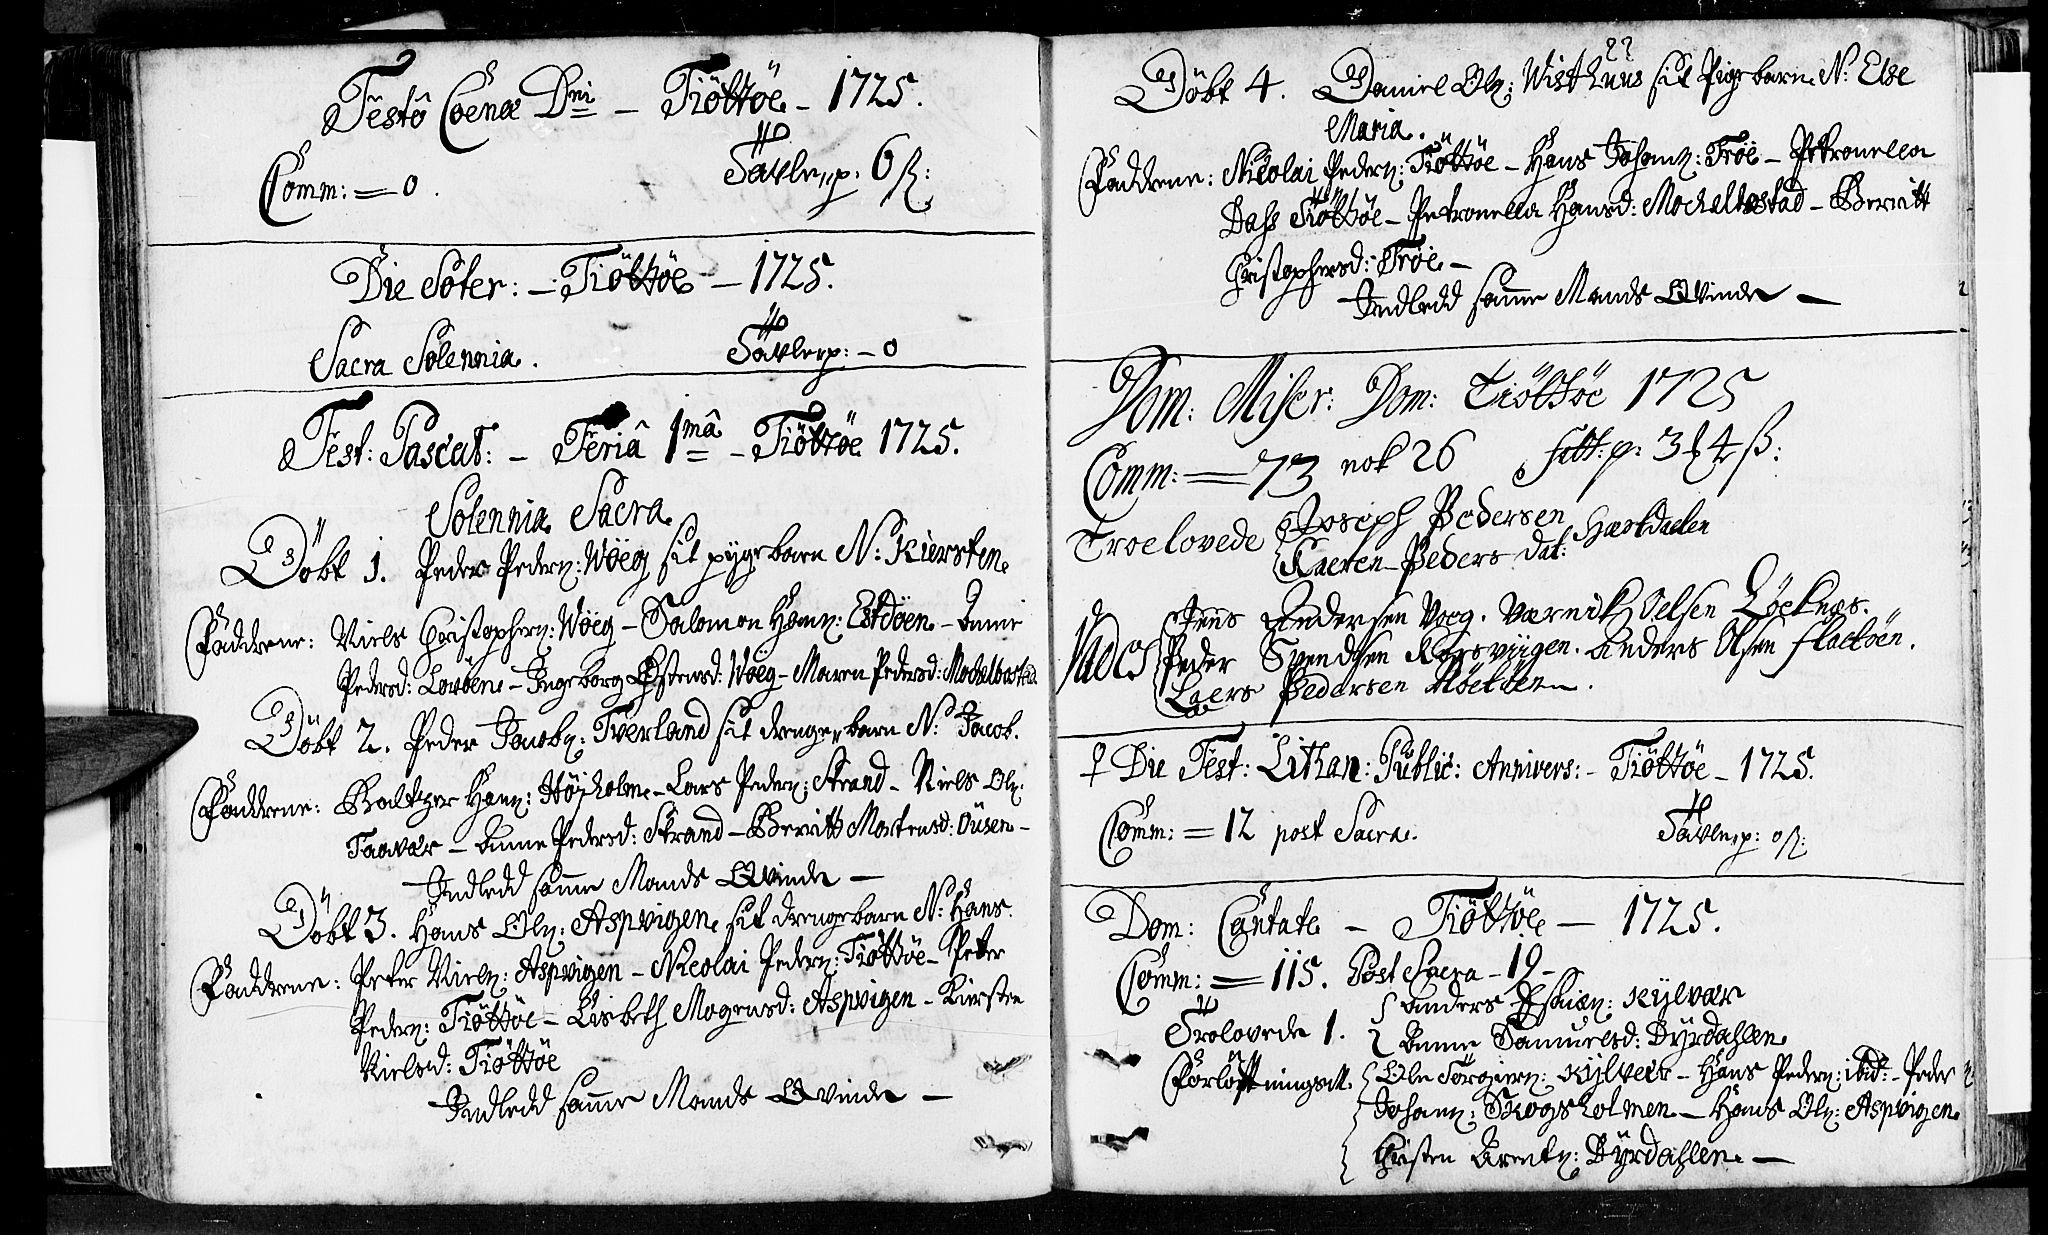 Festo Coenæ Dni – Tiöttöe – 1725.
Comm: = 0. Tavlenp: 6 ß:
Die Soter: – Tiöttöe – 1725.
Sacra Solennia. Tavlenp: – 0
Fest: Pascat: – Feriâ 1mâ – Tiöttöe 1725.
Solennia Sacra
Döbt 1. Peder Peders: Wöeg sit pygebarn N: Kiersten
Faddrene: Niels Christophers: Wöeg – Salomon Hans: Estdöen – Anne
Pedersd: Lovöen – Ingeborg Østensd: Wöeg – Maren Pedersd: Mochelbostad
Döbt 2. Peder Jacobs: Tverland sit drengebarn N: Jacob.
Faddrene: Baltzer Hans: Höyholm – Lars Peders: Strand – Niels Ols:
Taavær – Anne Pedersd: Strand – Berritt Mortensd: Öusen –
Indledd samme Mands Qvinde –
Döbt 3. Hans Ols: Aspvigen sit drengebarn N: Hans.
Faddrene: Peter Niels: Aspvigen – Nicolai Peders: Tiöttöe – Peter
Peders: Tiöttöe – Lisbeth Mogensd: Aspvigen – Kiersten
Nielsd: Tiöttöe
Indledd samme Mands Qvinde –
Döbt 4. Daniel Ols: Wisthuus sit Pigebarn N: Else
Maria.
Faddrene: Nicolai Peders: Tiöttöe – Hans Johans: Tröe – Petronella
Dass Tiöttöe – Petronella Hansd: Mochelbostad – Berritt
Christophersd: Tröe –
Indledd samme Mands Qvinde –
Dom: Miser: Dom: Tiöttöe 1725
Comm: = 73 nok 26 p: 3 4 ß:
Troelovede Joseph Pedersen
Karen Peders dat: Hartdalen
Vades Jens Andersen Voeg. Værnik Oelsen Löeknæs.
Peder Svendsen Korsviigen. Anders Olsen Flactöen.
Laers Pedersen
♀ Die Fest: Lithan: Public: Annivers: – Tiöttöe – 1725.
Comm: = 12 post Sacra. Tavlenp: 0 ß:
Dom: Cantate – Tiöttöe – 1725.
Comm: = 115. Post Sacra – 19 –
Trolovede 1. Anders Esaiæ: Kylvær
Anne Samuelsd: Dyrdahlen
Forlöftningsm. Ole Törgiers: Kylvær – Hans Peders: ibid: – Peder
Johans: Skogsholmen – Hans Ols: Aspvigen
Christen Arents: Dyrdahlen –